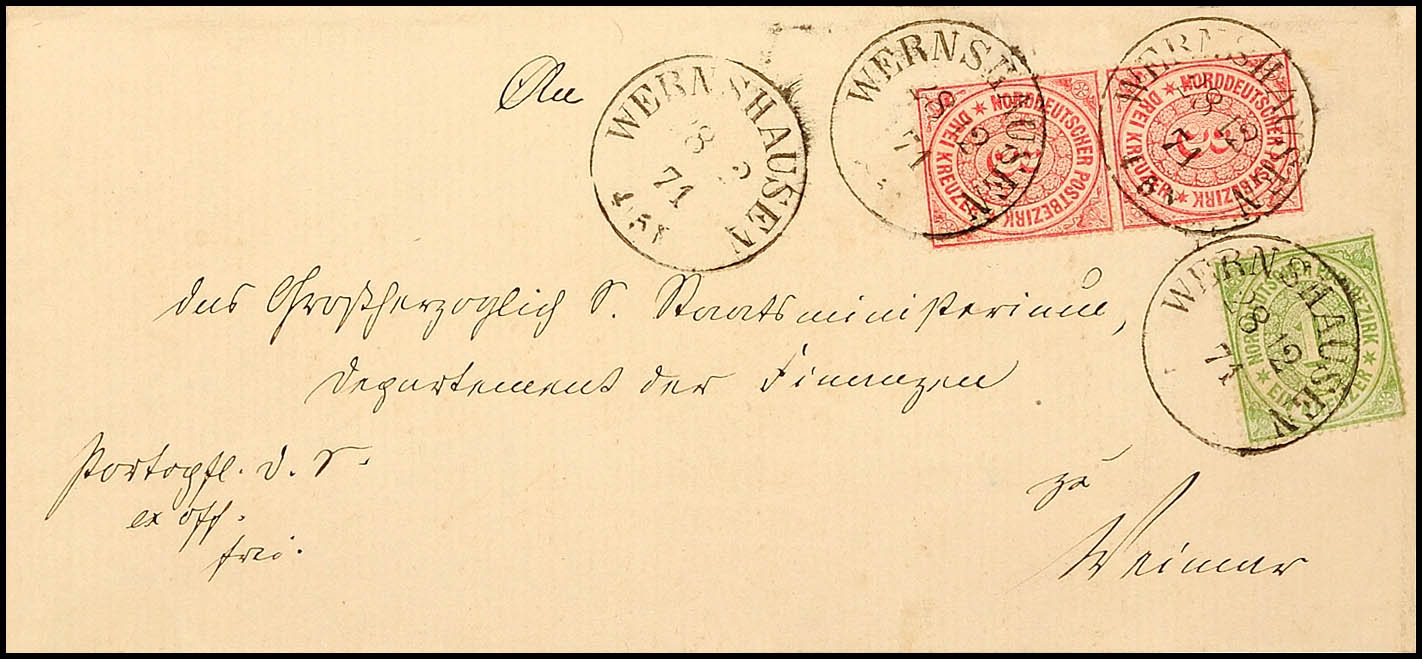 An
WERNSHAUSEN
18 2
71
WERNSHAUSEN
18 2
71
WERNSHAUSEN
18 2
71
NORDDEUTSCHER POSTBEZIRK
DREI KREUZER
3
NORDDEUTSCHER POSTBEZIRK
DREI KREUZER
3
das Großherzoglich S. Staatsministerium,
WERNSHAUSEN
18 2
71
NORDDEUTSCHER POSTBEZIRK
EIN KREUZER
1
Departement der Finanzen
Portopfl. D. S.
ex off.
frei.
zu
Weimar